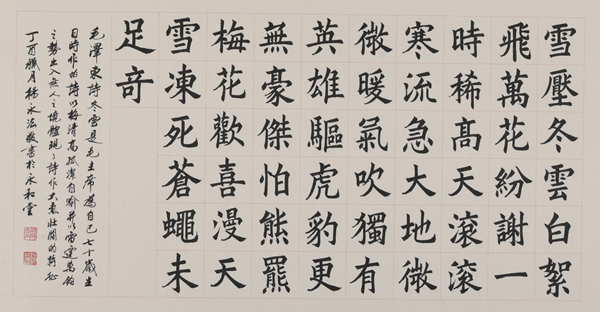 雪壓冬雲白絮
飛萬花紛謝一
時稀髙天滾滾
寒流急大地微
微暖氣吹獨有
英雄驅虎豹更
無豪傑怕熊羆
梅花歡喜漫天
雪凍死蒼蠅未
足竒
毛澤東詩冬雲是毛主席為自己七十歲生
日時作的詩以梅清高孤潔自喻并以雷霆萬鈞
之勢出入無人之境體現了詩作壯闊的特征
丁酉臘月楊永法敬書於永和堂